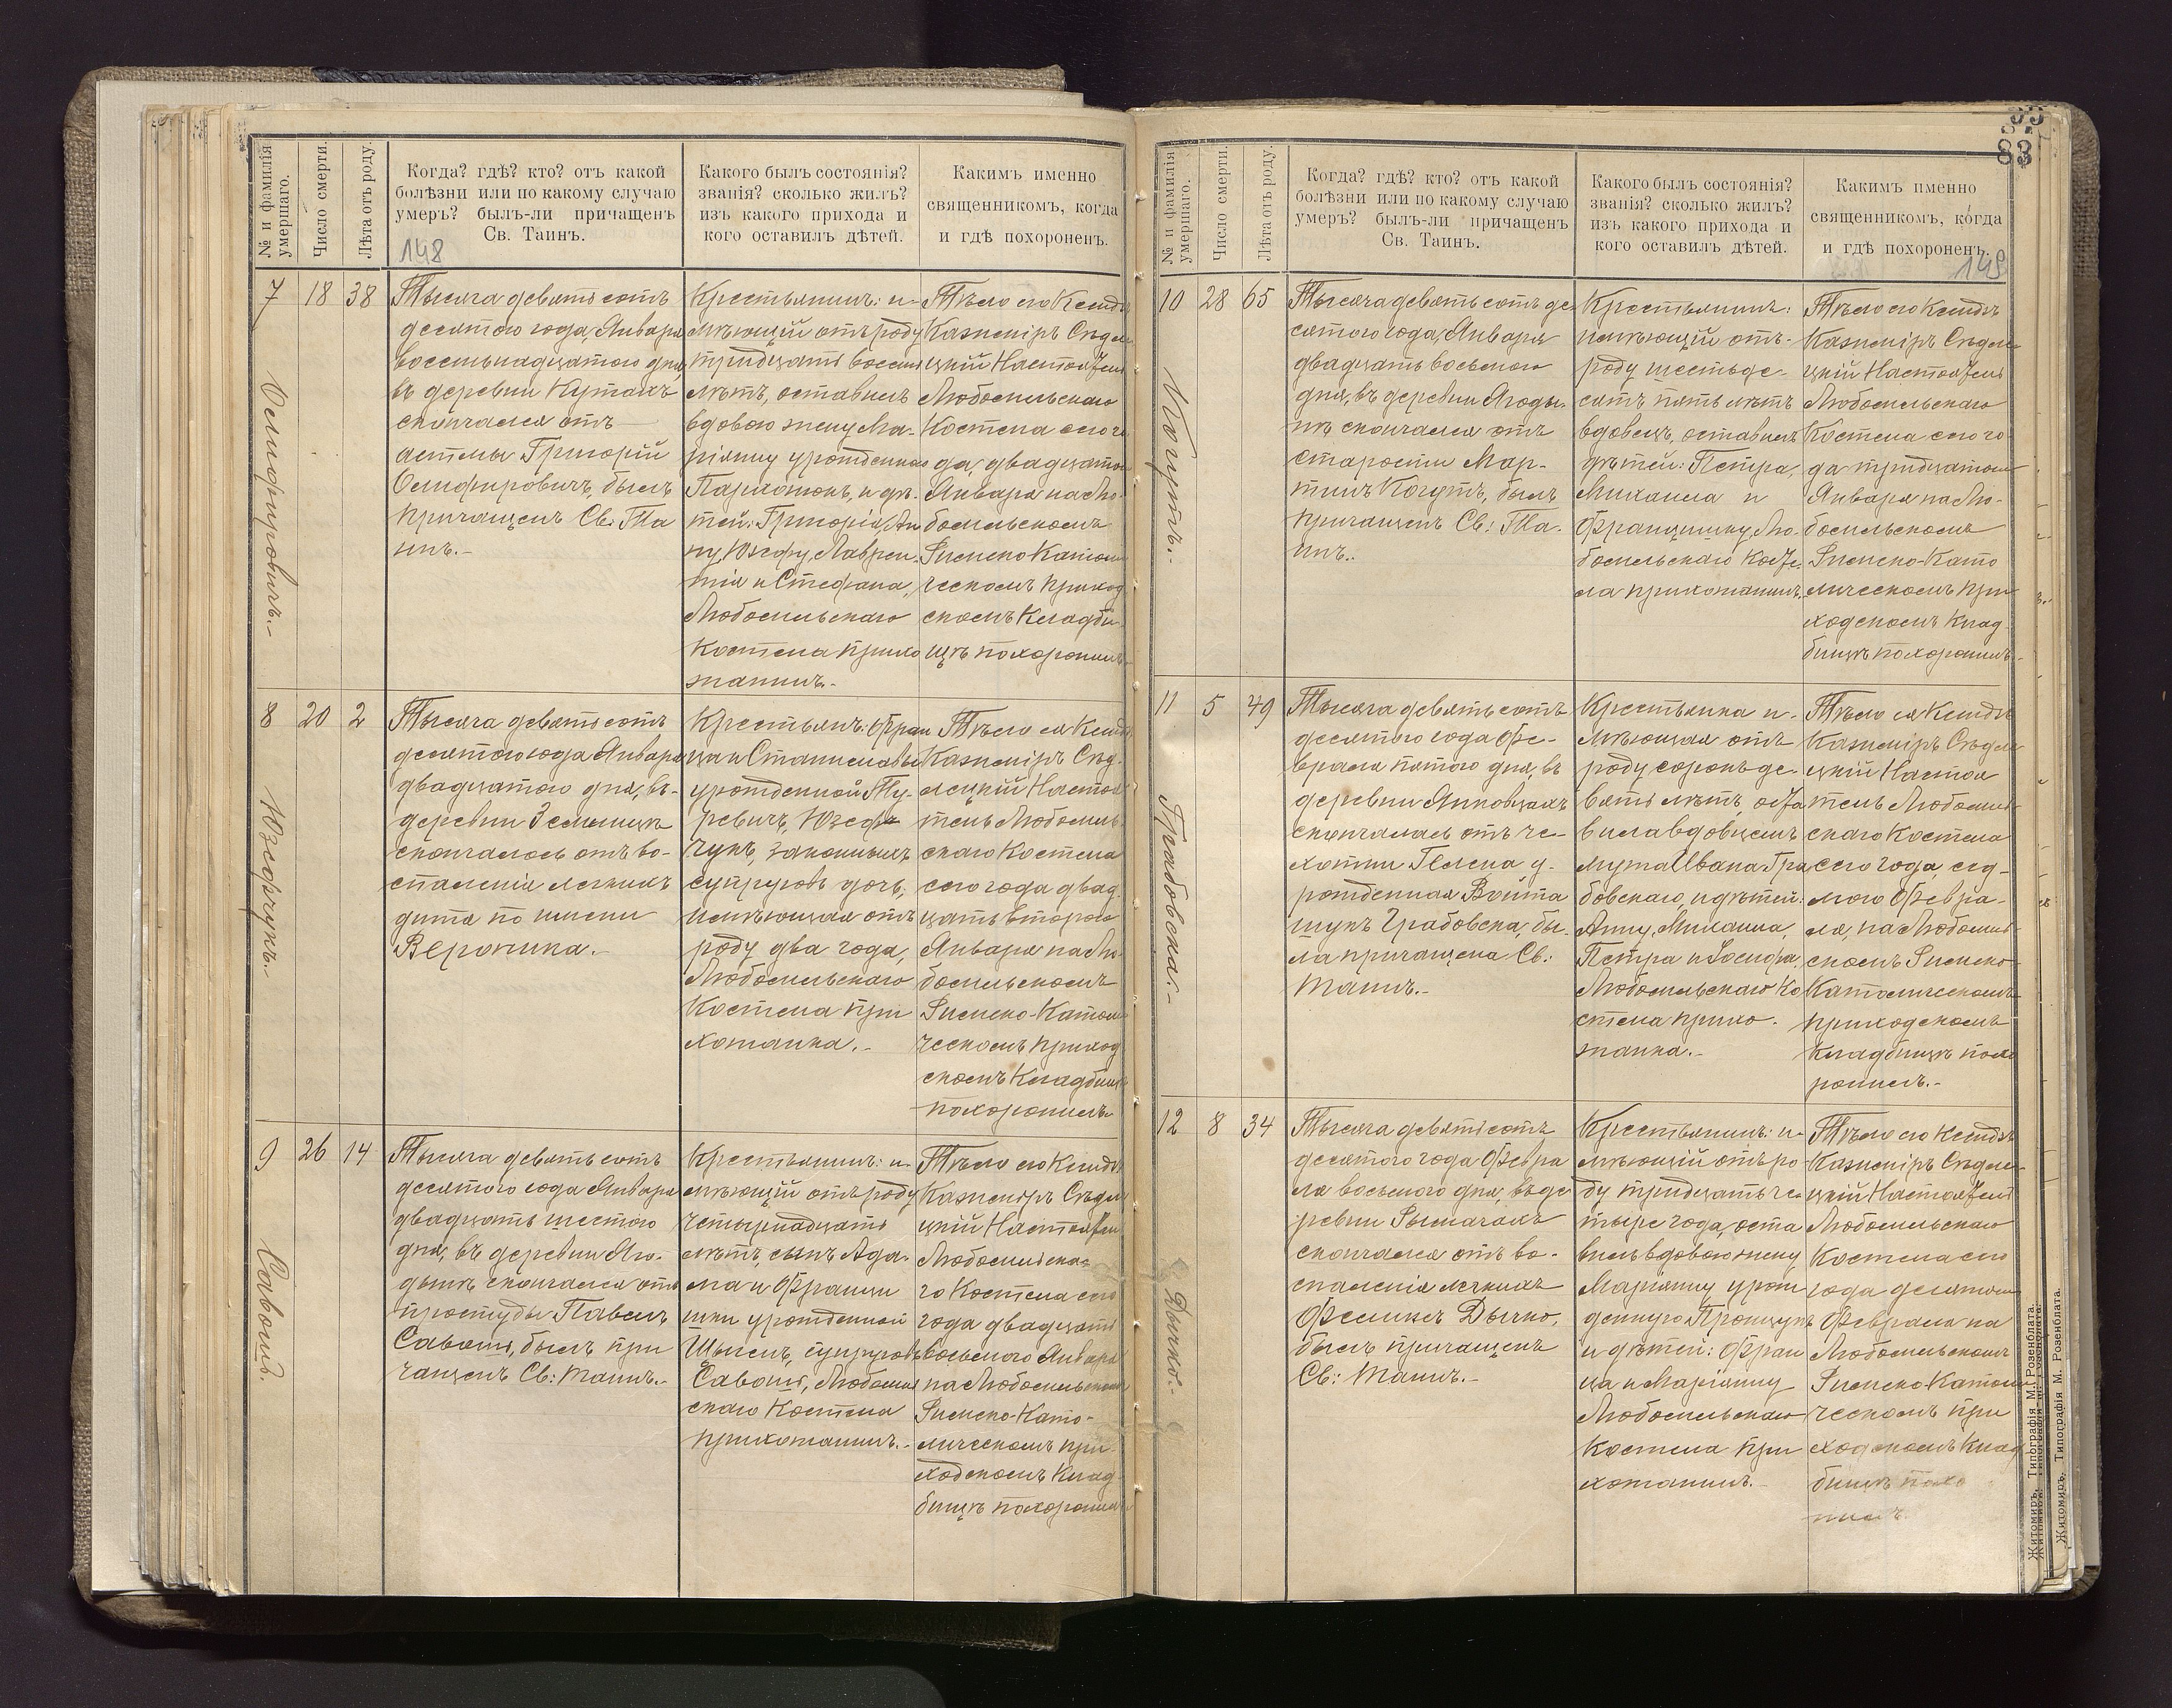 № и фамилія умершаго.
Число смерти.
Лѣта отъ роду.
Когда? гдѣ? кто? отъ какой
болѣзни или по какому случаю
умеръ? былъ-ли причащенъ
Св. Таинъ.
148
Какого былъ состоянія?
званія? сколько жилъ?
изъ какого прихода и
кого оставилъ дѣтей.
Какимъ именно
священникомъ, когда
и гдѣ похороненъ.
7
18
38
Тысяча девятьсотъ
десятого года, Января
восемьнадцатого дня
въ деревни Кутахъ
скончался отъ
астмы Григорій
, былъ
причащенъ Св: Та
инъ.-
Крестьянинъ: и-
мѣющій отъ роду
тридцать восемь
лѣтъ, оставилъ
вдовою жену Ма-
ріянну урожденною
Пархомюкъ, и дѣ-
тей: Григорія, Ан
ну, Юзефу, Лаврен-
тія и Стефана,
Любомльскаго
Костела прихо
жанинъ.-
Тѣло его Ксендзъ
Казиміръ Сѣдле-
цкій Настоятель
Любомльскаго
Костела сего го
да, двадцатого
Января на Лю-
бомльскомъ
Римско Католи
ческомъ приход
скомъ Кладби-
щѣ похоронилъ
8
20
2
Юзефчукъ.-
Тысяча девятьсотъ
десятого года Января
двадцатого дня, въ-
деревни Землицѣ
скончалось отъ во-
спаленія легкихъ
дитя по имени
Вероника.-
Крестьянъ: Фран
ца и Станиславы
урожденной Ту-
ревичъ, Юзеф
чукъ, законныхъ
супруговъ дочь,
имѣющая отъ
роду два года,
Любомльскаго
Костела при
хожанка.-
Тѣло ея Ксендзъ
Казиміръ Сѣд-
лецкій Настоя
тель Любомль-
скаго Костела
сего года двад
цать второго
Января на Лю-
бомльскомъ
Римско-Католи
ческомъ приход
скомъ Кладбищѣ
похоронилъ
9
26
14
Савошъ.
Тысяча девятьсотъ
десятого года Января
двадцать шестого
дня, въ деревни Яго-
дынѣ скончался отъ
простуды Павелъ
Савошъ, былъ при
чащенъ Св: Таинъ.-
Крестьянинъ: и-
мѣющій отъ роду
четырнадцать
лѣтъ, сынъ Ада-
ма и Францы
шки урожденной
супруговъ
Савошъ, Любомль
скаго Костела
прихожанинъ.-
Тѣло его Ксендзъ
Казиміръ Сѣдле
цкій Настоятель
Любомльска-
го Костела сего
года двадцать
восьмого Января
на Любомльскомъ
Римско-Като-
лическомъ при-
ходскомъ Клад-
бищѣ похоронилъ
83
№ и фамилія умершаго.
Число смерти.
Лѣта отъ роду.
Когда? гдѣ? кто? отъ какой
болѣзни или по какому случаю
умеръ? былъ-ли причащенъ
Св. Таинъ.
Какого былъ состоянія?
званія? сколько жилъ?
изъ какого прихода и
кого оставилъ дѣтей.
Какимъ именно
священникомъ, когда
и гдѣ похороненъ.
149
10
28
65
Когутъ.-
Тысяча девятьсотъ де
сятого года, Января
двадцать восьмого
дня, въ деревни Ягоды-
нѣ скончался отъ
старости Мар-
тинъ Когутъ, былъ
причащенъ Св: Та-
инъ.-
Крестьянинъ:
имѣющій отъ-
роду шестьде-
сятъ пять лѣтъ
вдовецъ, оставилъ
дѣтей: Петра,
Михаила и
Францишку, Лю-
бомльскаго косте-
ла прихожанинъ.
Тѣло его Ксендзъ
Казиміръ Сѣдле-
цкій Настоятель
Любомльскаго
Костела сего го
да тридцатого
Января на Лю-
бомльскомъ
Римско-Като
лическомъ при
ходскомъ Клад-
бищѣ похоронилъ.
11
5
49
Грабовска.-
Тысяча девятьсотъ
десятого года Фе-
враля пятого дня, въ
деревни Янковцахъ
скончалась отъ че-
хотки Гелена у-
рожденная Войта
шукъ Грабовска, бы-
ла причащена Св:
Таинъ.-
Крестьянка и-
мѣющая отъ
роду сорокъ де-
вять лѣтъ, оста
вила вдовцемъ
мужа Ивана Гра
бовскаго, и дѣтей:
Анну, Михаила,
Петра и Іосифа,
Любомльскаго Ко
стела прихо-
жанка.-
Тѣло ея Ксендзъ
Казиміръ Сѣдле
цкій Настоя
тель Любомль-
скаго Костела
сего года, сед-
мого Февра-
ля, на Любомль-
скомъ Римско-
Католическомъ
приходскомъ
Кладбищѣ похо
ронилъ.-
12
8
34
Дычко.-
Тысяча девятьсотъ
десятого года Февра
ля восьмого дня, въ де
ревни Рымачахъ
скончался отъ во-
спаленія легкихъ
Феликсъ Дычко,
былъ причащенъ
Св: Таинъ.-
Крестьянинъ: и-
мѣющій отъ ро-
ду тридцать че-
тыре года, оста
вилъ вдовою жену
Маріянну урож
денную Процукъ
и дѣтей: Фран
ца и Маріянну
Любомльскаго
Костела при
хожанинъ.-
Тѣло его Ксендзъ
Казиміръ Сѣдле-
цкій Настоятель
Любомльскаго
Костела сего
года десятого
Февраля на
Любомльскомъ
Римско-Католи
ческомъ при
ходскомъ Клад
бищѣ похо
нилъ.
Житомиръ, Типографія М. Розенблата.
Житомиръ, Типографія М. Розенблата.